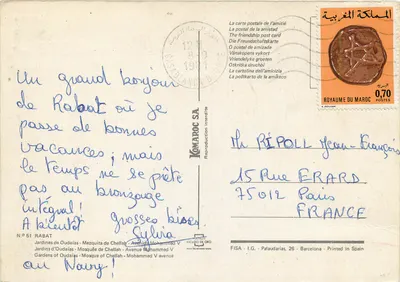 Un grand bonjour
de Rabat où je
passe de bonnes
vacances, mais
le temps ne se prête
pas au bronzage
intégral!
grosses bises.
A bientôt
Sylvia
au Navy!
Nº 51 RABAT
Jardines de Oudaias - Mezquita de Chellah - Avenida Mohammed V
Jardins des Oudaias - Mosquée de Chellah - Avenue Mohammed V
Gardens of Oudaias - Mosque of Chellah - Mohammed V avenue
KOMAROC S.A.
Reproduction interdite
La carte postale de l'amitié
La postal de la amistad
The friendship post card
Die Freundschaftskarte
O postal da amizade
Vänskapens vykort
Vriendelijke groeten
La cartolina dell'amicizia
المملكة المغربية
0,70
ROYAUME DU MAROC
POSTES
Mr RIPOLL Jean-François
15 RUE ERARD
75012 Paris
FRANCE
FISA - I.G. - Palaudarias, 26 - Barcelona - Printed in Spain